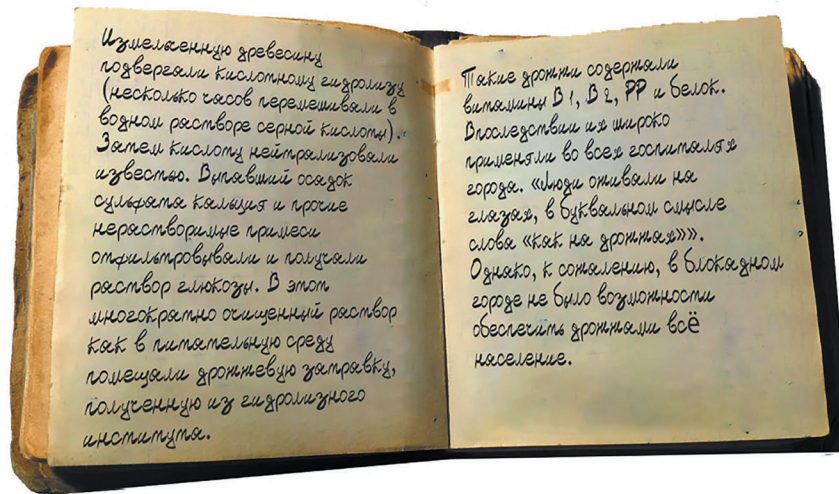 Измельченную древесину
подвергали кислотному гидролизу
(несколько часов перемешивали в
водном растворе серной кислоты).
Затем кислоту нейтрализовали
известью. Выпавший осадок
сульфата кальция и прочие
нерастворимые примеси
отфильтровывали и получали
раствор глюкозы. В этот
многократно очищенный раствор
как в питательную среду
помещали дрожжевую затравку,
полученную из гидролизного
института.
Такие дрожжи содержали
витамины В1, В2, РР и белок.
Впоследствии их широко
применяли во всех госпиталях
города. «Люди оживали на
глазах, в буквальном смысле
слова «как на дрожжах»».
Однако, к сожалению, в блокадном
городе не было возможности
обеспечить дрожжами всё
население.